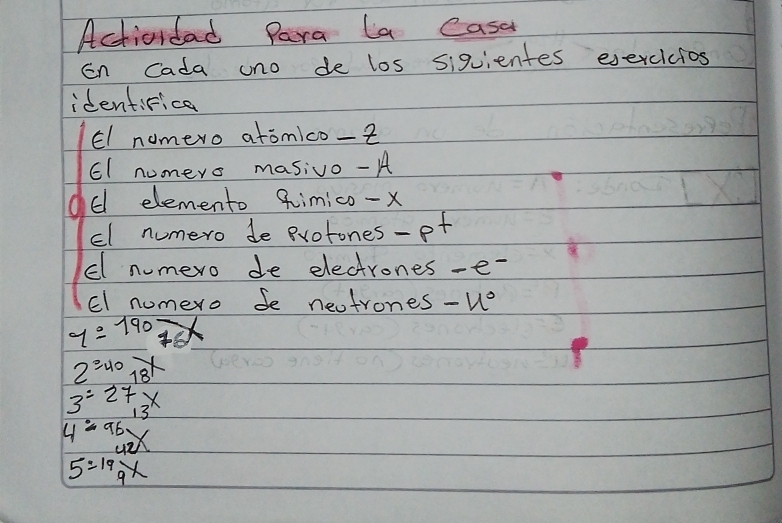 Actividad Para La Casa
En Cada uno de los siguientes esercicios
identifica
El numero atómico - Z
El numero masivo - A
El elemento Quimico - X
El numero de protones - p+
El numero de electrones - e-
El numero de neutrones - N°
1= 190 76 X
2= 40 18 X
3= 27 13 X
4= 96 42 X
5= 19 9 X